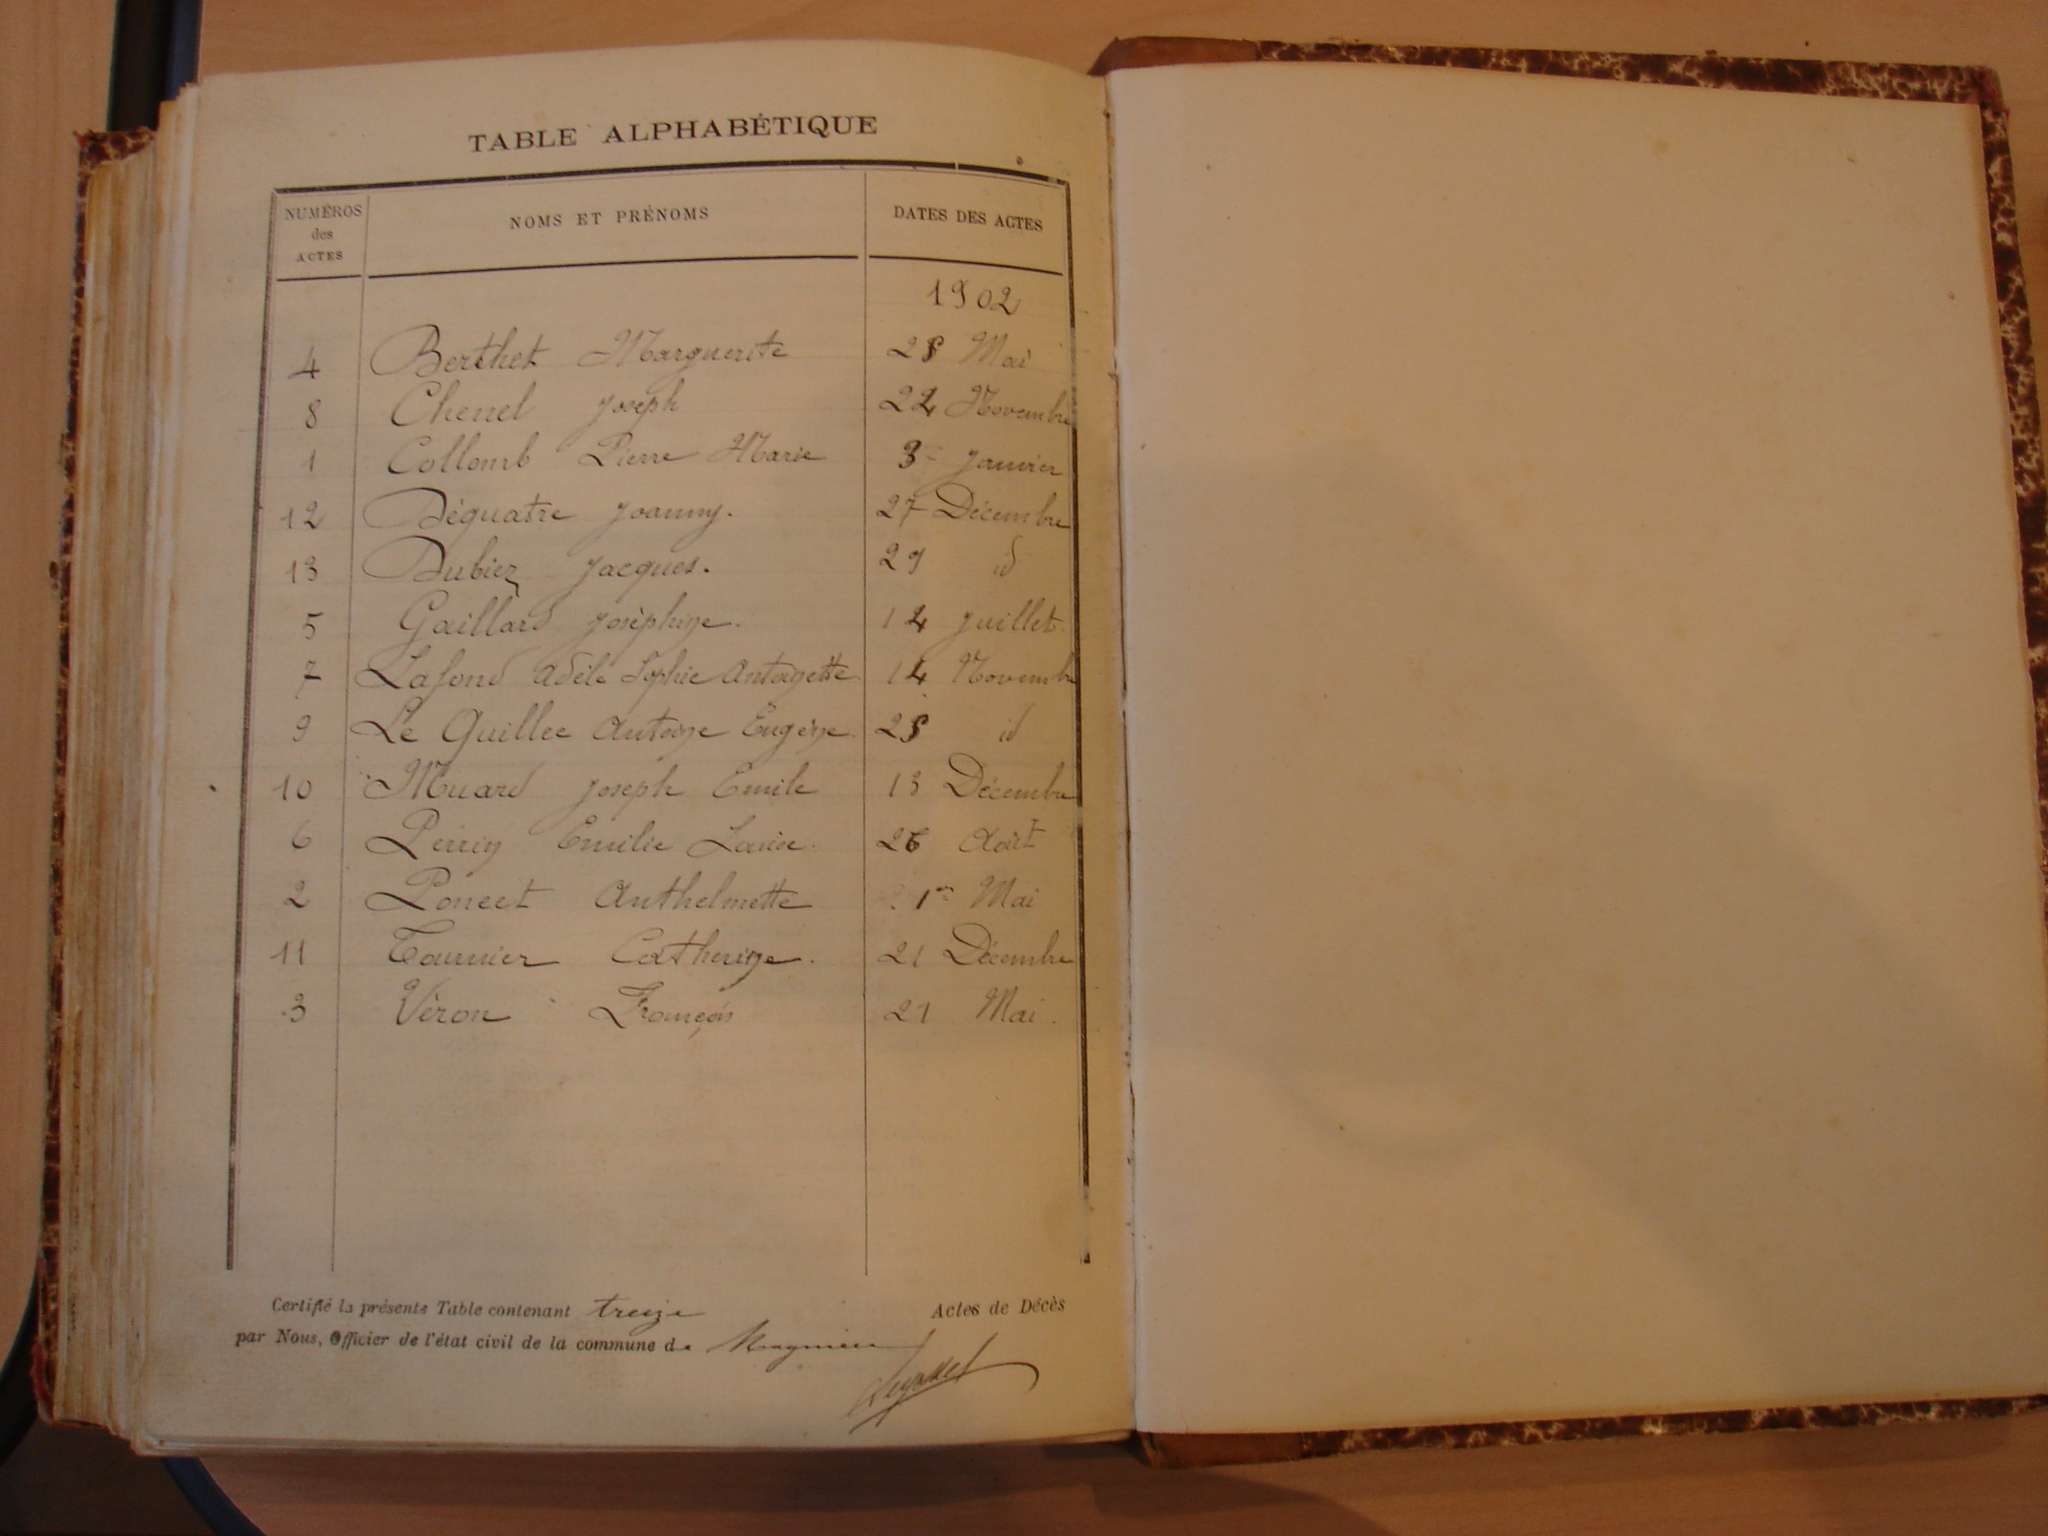 TABLE ALPHABÉTIQUE
NUMÉROS des ACTES NOMS ET PRÉNOMS DATES DES ACTES
1902
4 Berthet Marguerite 28 Mai
8 Chenel Joseph 22 Novembre
1 Collomb Pierre Marie 3 Janvier
12 Déquatre Joanny. 27 Décembre
13 Dubiez Jacques. 29 id
5 Gaillard Joséphine. 14 Juillet.
7 Lafond Adèle Sophie Antoinette 14 Novembre
9 Le Quillec Antoine Eugène. 28 id
10 Muard Joseph Emile 13 Décembre
6 Perrin Emilie Louise. 26 Août
2 Poncet Anthelmette 1er Mai
11 Tournier Catherine. 21 Décembre
3 Véron François 21 Mai.
Certifié la présente Table contenant treize Actes de Décès
par Nous, Officier de l'état civil de la commune de